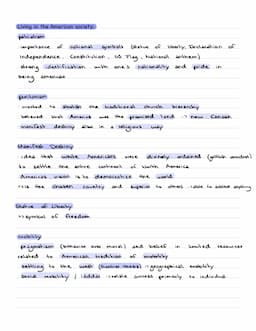 Living in the American society
patriotism
importance of national symbols (Statue of Liberty, Declaration of
Independence, Constitution, US Flag, National anthem)
strong identification with one's nationality and pride in
being american
puritanism
wanted to abolish the traditional church hierarchy
believed that America was the promised land → new Canaan
manifest destiny also in a religious way
Manifest Destiny
idea that white Americans were divinely ordained
to settle the entire continent of North America
America's wish is to democratize the world
is the chosen country and superior to others - able to
Statue of Liberty
→ symbol of freedom
mobility
and belief in limited resources
related to American tradition of mobility
settling to the west → geographical mobility
social mobility / relate success primarily to individual